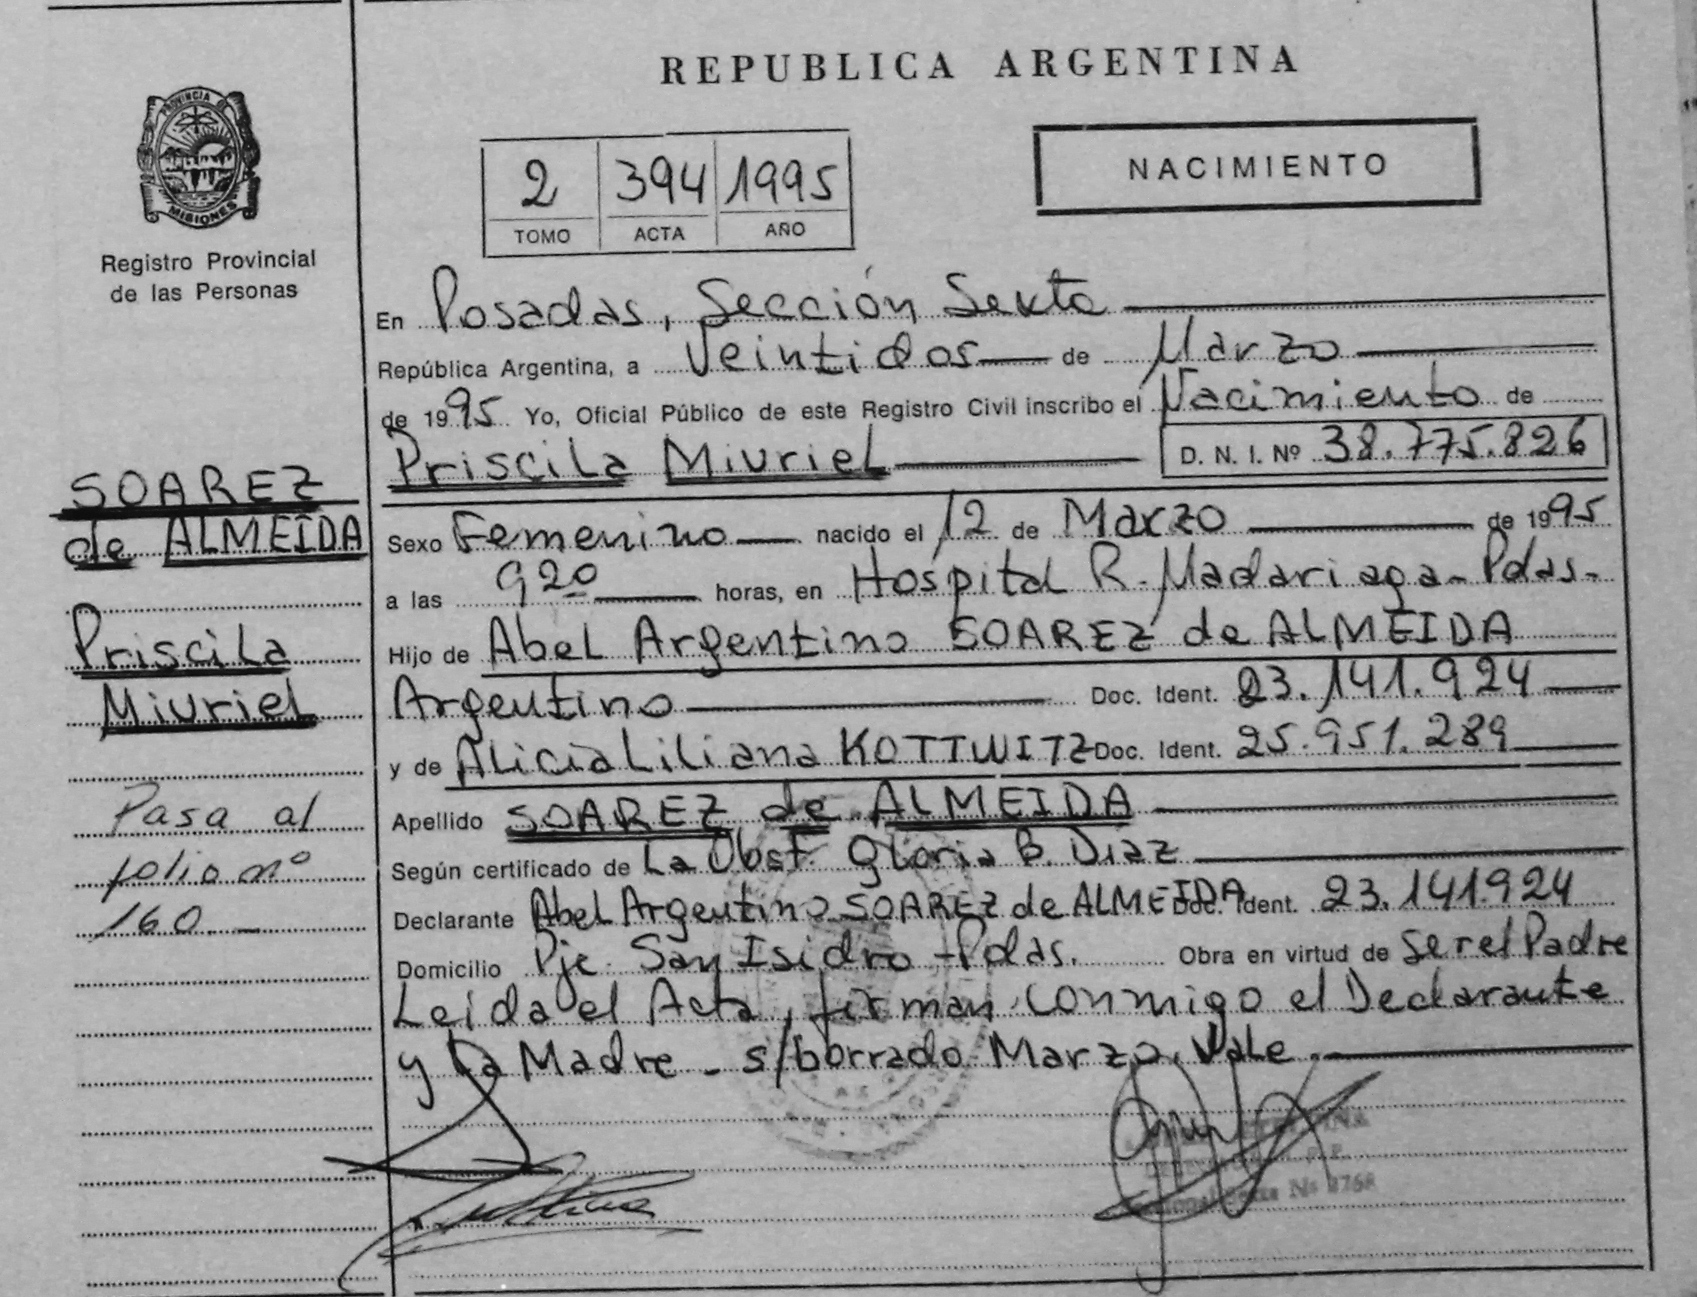 REPUBLICA ARGENTINA
PROVINCIA DE
MISIONES
Registro Provincial
de las Personas
2 394 1995
TOMO ACTA AÑO
NACIMIENTO
En Posadas, Sección Sexta
República Argentina, a Veintidos de Marzo
de 1995 Yo, Oficial Público de este Registro Civil inscribo el Nacimiento de
Priscila Miuriel D. N. I. Nº 38.775.826
SOAREZ
de ALMEIDA
Priscila
Miuriel
Pasa al
folio nº
160.-
Sexo Femenino nacido el 12 de Marzo de 1995
a las 920 horas, en Hospital R. Madariaga - Pdas-
Hijo de Abel Argentino SOAREZ de ALMEIDA
Argentino Doc. Ident. 23.141.924
y de Alicia Liliana KOTTWITZ Doc. Ident. 25.951.289
Apellido SOAREZ de ALMEIDA
Según certificado de La Obst. Gloria B. Diaz
Declarante Abel Argentino SOAREZ de ALMEIDA Doc. Ident. 23.141.924
Domicilio Pje. San Isidro - Pdas. Obra en virtud de ser el Padre
Leida el Acta, firman conmigo el Declarante
y La Madre - s/borrado Marzo, Vale.
Nº 8768